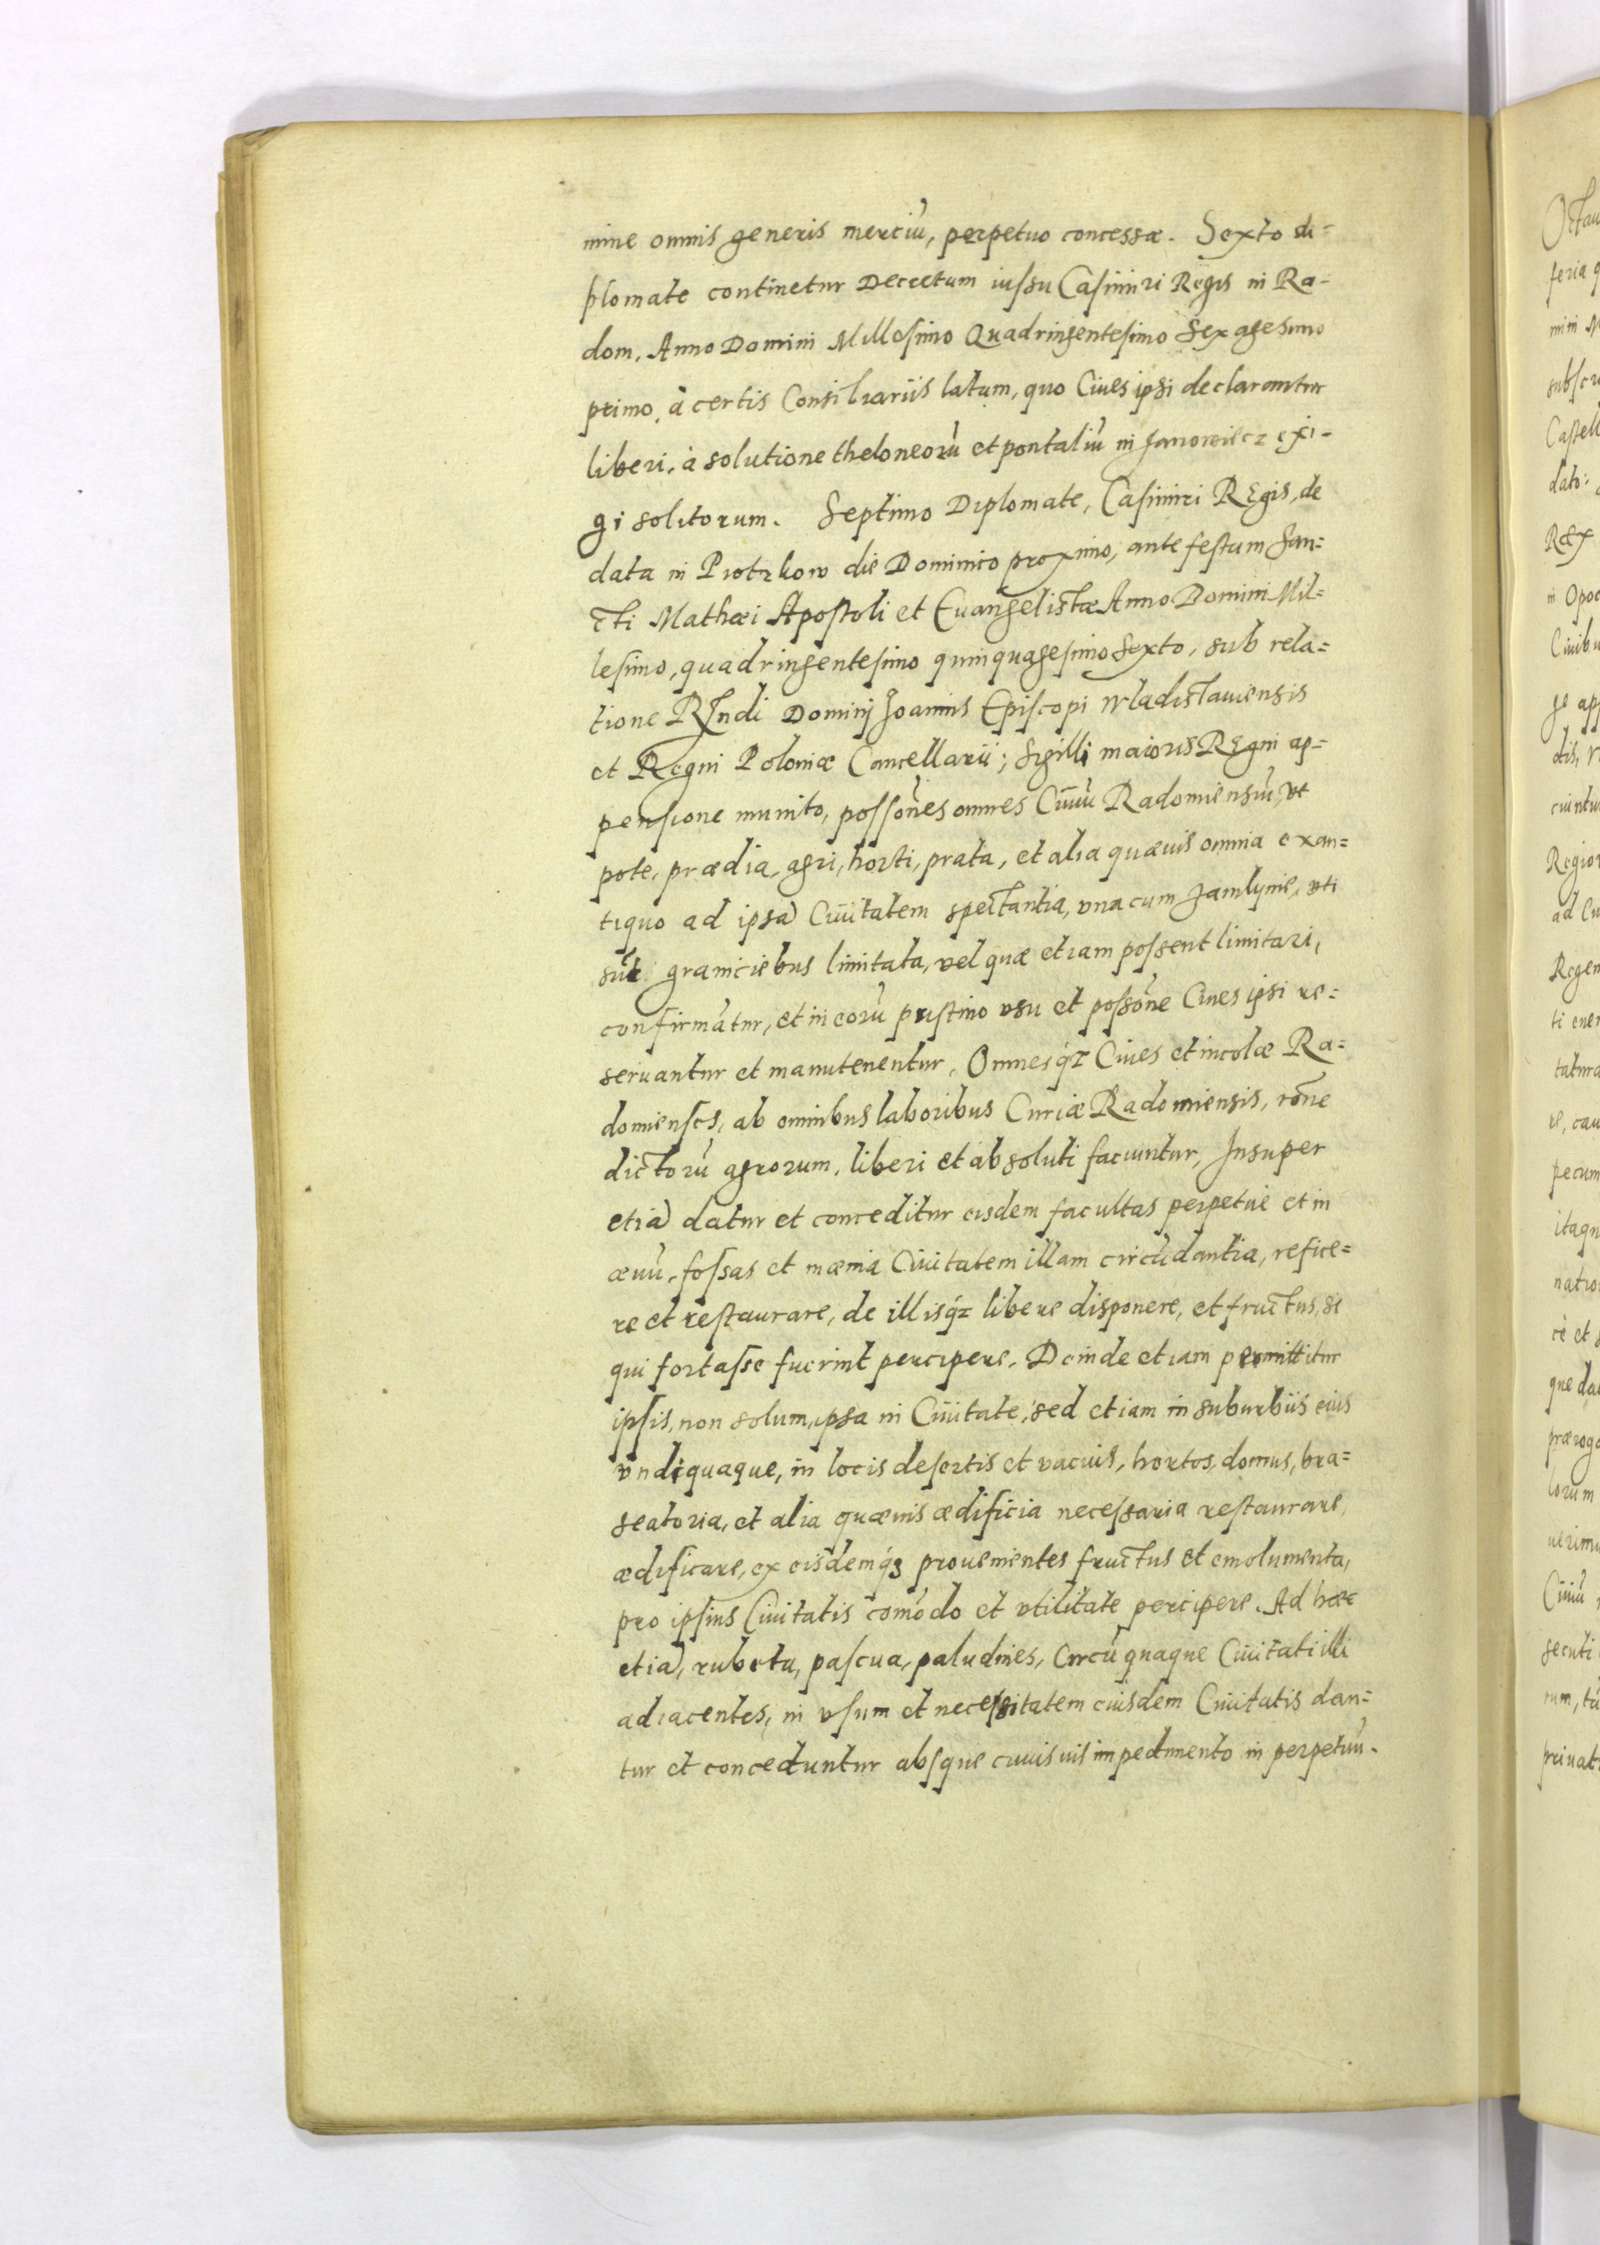 mine omnis generis merciū, perpetuo concessæ. Sexto di=
plomate continetur Decretum iussu Casimiri Regis in Ra=
dom, Anno Domini Millesimo Quadringentesimo Sexagesimo
primo, à certis Consiliariis latum, quo Ciues ipsi declarantur
liberi, à solutione theloneorū et pontaliū in Janowiecz exi=
gi solitorum. Septimo Diplomate, Casimiri Regis, de
data in Piotrkow die Dominico proximo, ante festum San=
cti Mathæi Apostoli et Euangelistæ Anno Domini Mil=
lesimo, quadringentesimo quinquagesimo Sexto, sub rela=
tione Rndi Dominj Joannis Episcopi Wladislauiensis
et Regni Poloniæ Cancellarii; Sigilli maioris Regni ap=
pensione munito, possōnes omnes Ciuiū Radomiensiū, vt
pote, prædia, agri, horti, prata, et alia quæuis omnia ex an=
tiquo ad ipsā Ciuitatem spectantia, vna cum Jamlynie, vti
sūt graniciebus limitata, vel quæ etiam possent limitari,
confirmātur, et in eorū pristino vsu et possōne Ciues ipsi re=
seruantur et manutenentur, Omnesq́ꝫ Ciues et incolæ Ra=
domienses, ab omnibus laboribus Curiæ Radomiensis, rōne
dictorū agrorum, liberi et absoluti faciuntur, Insuper
etiā datur et conceditur eisdem facultas perpetuè et in
æuū, fossas et mænia Ciuitatem illam circūdantia, refice=
re et restaurare, de illisq́ꝫ libere disponere, et fructus, si
qui fortasse fuerint percipere. Deinde etiam permittitur
ipsis, non solum, ipsa in Ciuitate, sed etiam in suburbiis eius
vndiquaque, in locis desertis et vacuis, hortos, domus, bra=
seatoria, et alia quæuis ædificia necessaria restaurare,
ædificare, ex eisdemq́ꝫ prouenientes fructus et emolumenta,
pro ipsius Ciuitatis comōdo et vtilitate percipere. Ad hæc
etiā, rubeta, pascua, paludines, Circūquaque Ciuitati illi
adiacentes, in vsum et necessitatem eiusdem Ciuitatis dan=
tur et conceduntur absque cuiusuis impedimento in perpetuū.